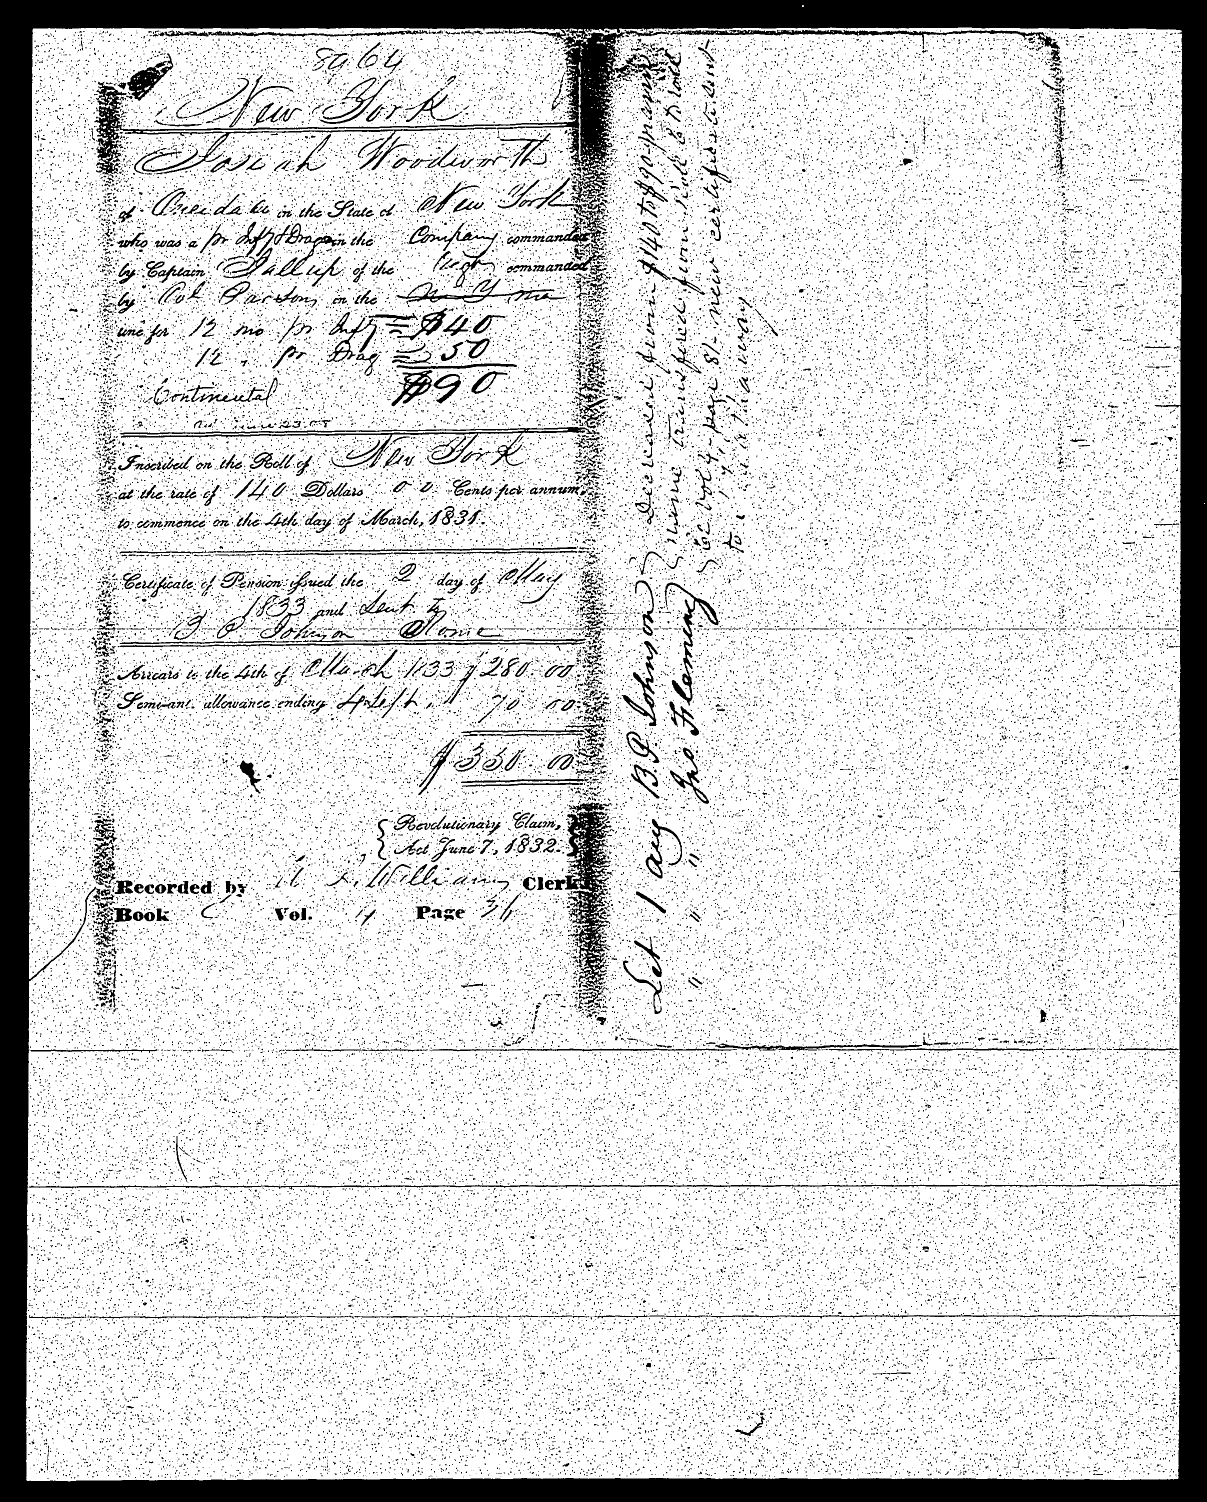 8964
New York
Josiah Woodworth
of Oneida Co in the State of New York
who was a pr Infy & Drag in the Company commanded
by Captain Gallup of the Regt commanded
by Col Parsons in the N Y line
line for 12 mo pr Infy = $40
12 " pr Drag = 50
$90
Continental
Inscribed on the Roll of New York
at the rate of 140 Dollars 00 Cents per annum,
to commence on the 4th day of March, 1831.
Certificate of Pension issued the 2 day of May
1833 and sent to
B. P. Johnson Rome
Arrears to the 4th of March 1833 $280.00
Semi-ant. allowance ending 4 Sept. 70 00
$350 00
Revolutionary Claim,
Act June 7, 1832.
Recorded by Williams Clerk
Book Vol. 4 Page
Let 1 Aug B P Johnson Decreased from $140 to $90 p annm
" " " Jno Fleming name transferred from
vol 4 page 81- new certificate sent